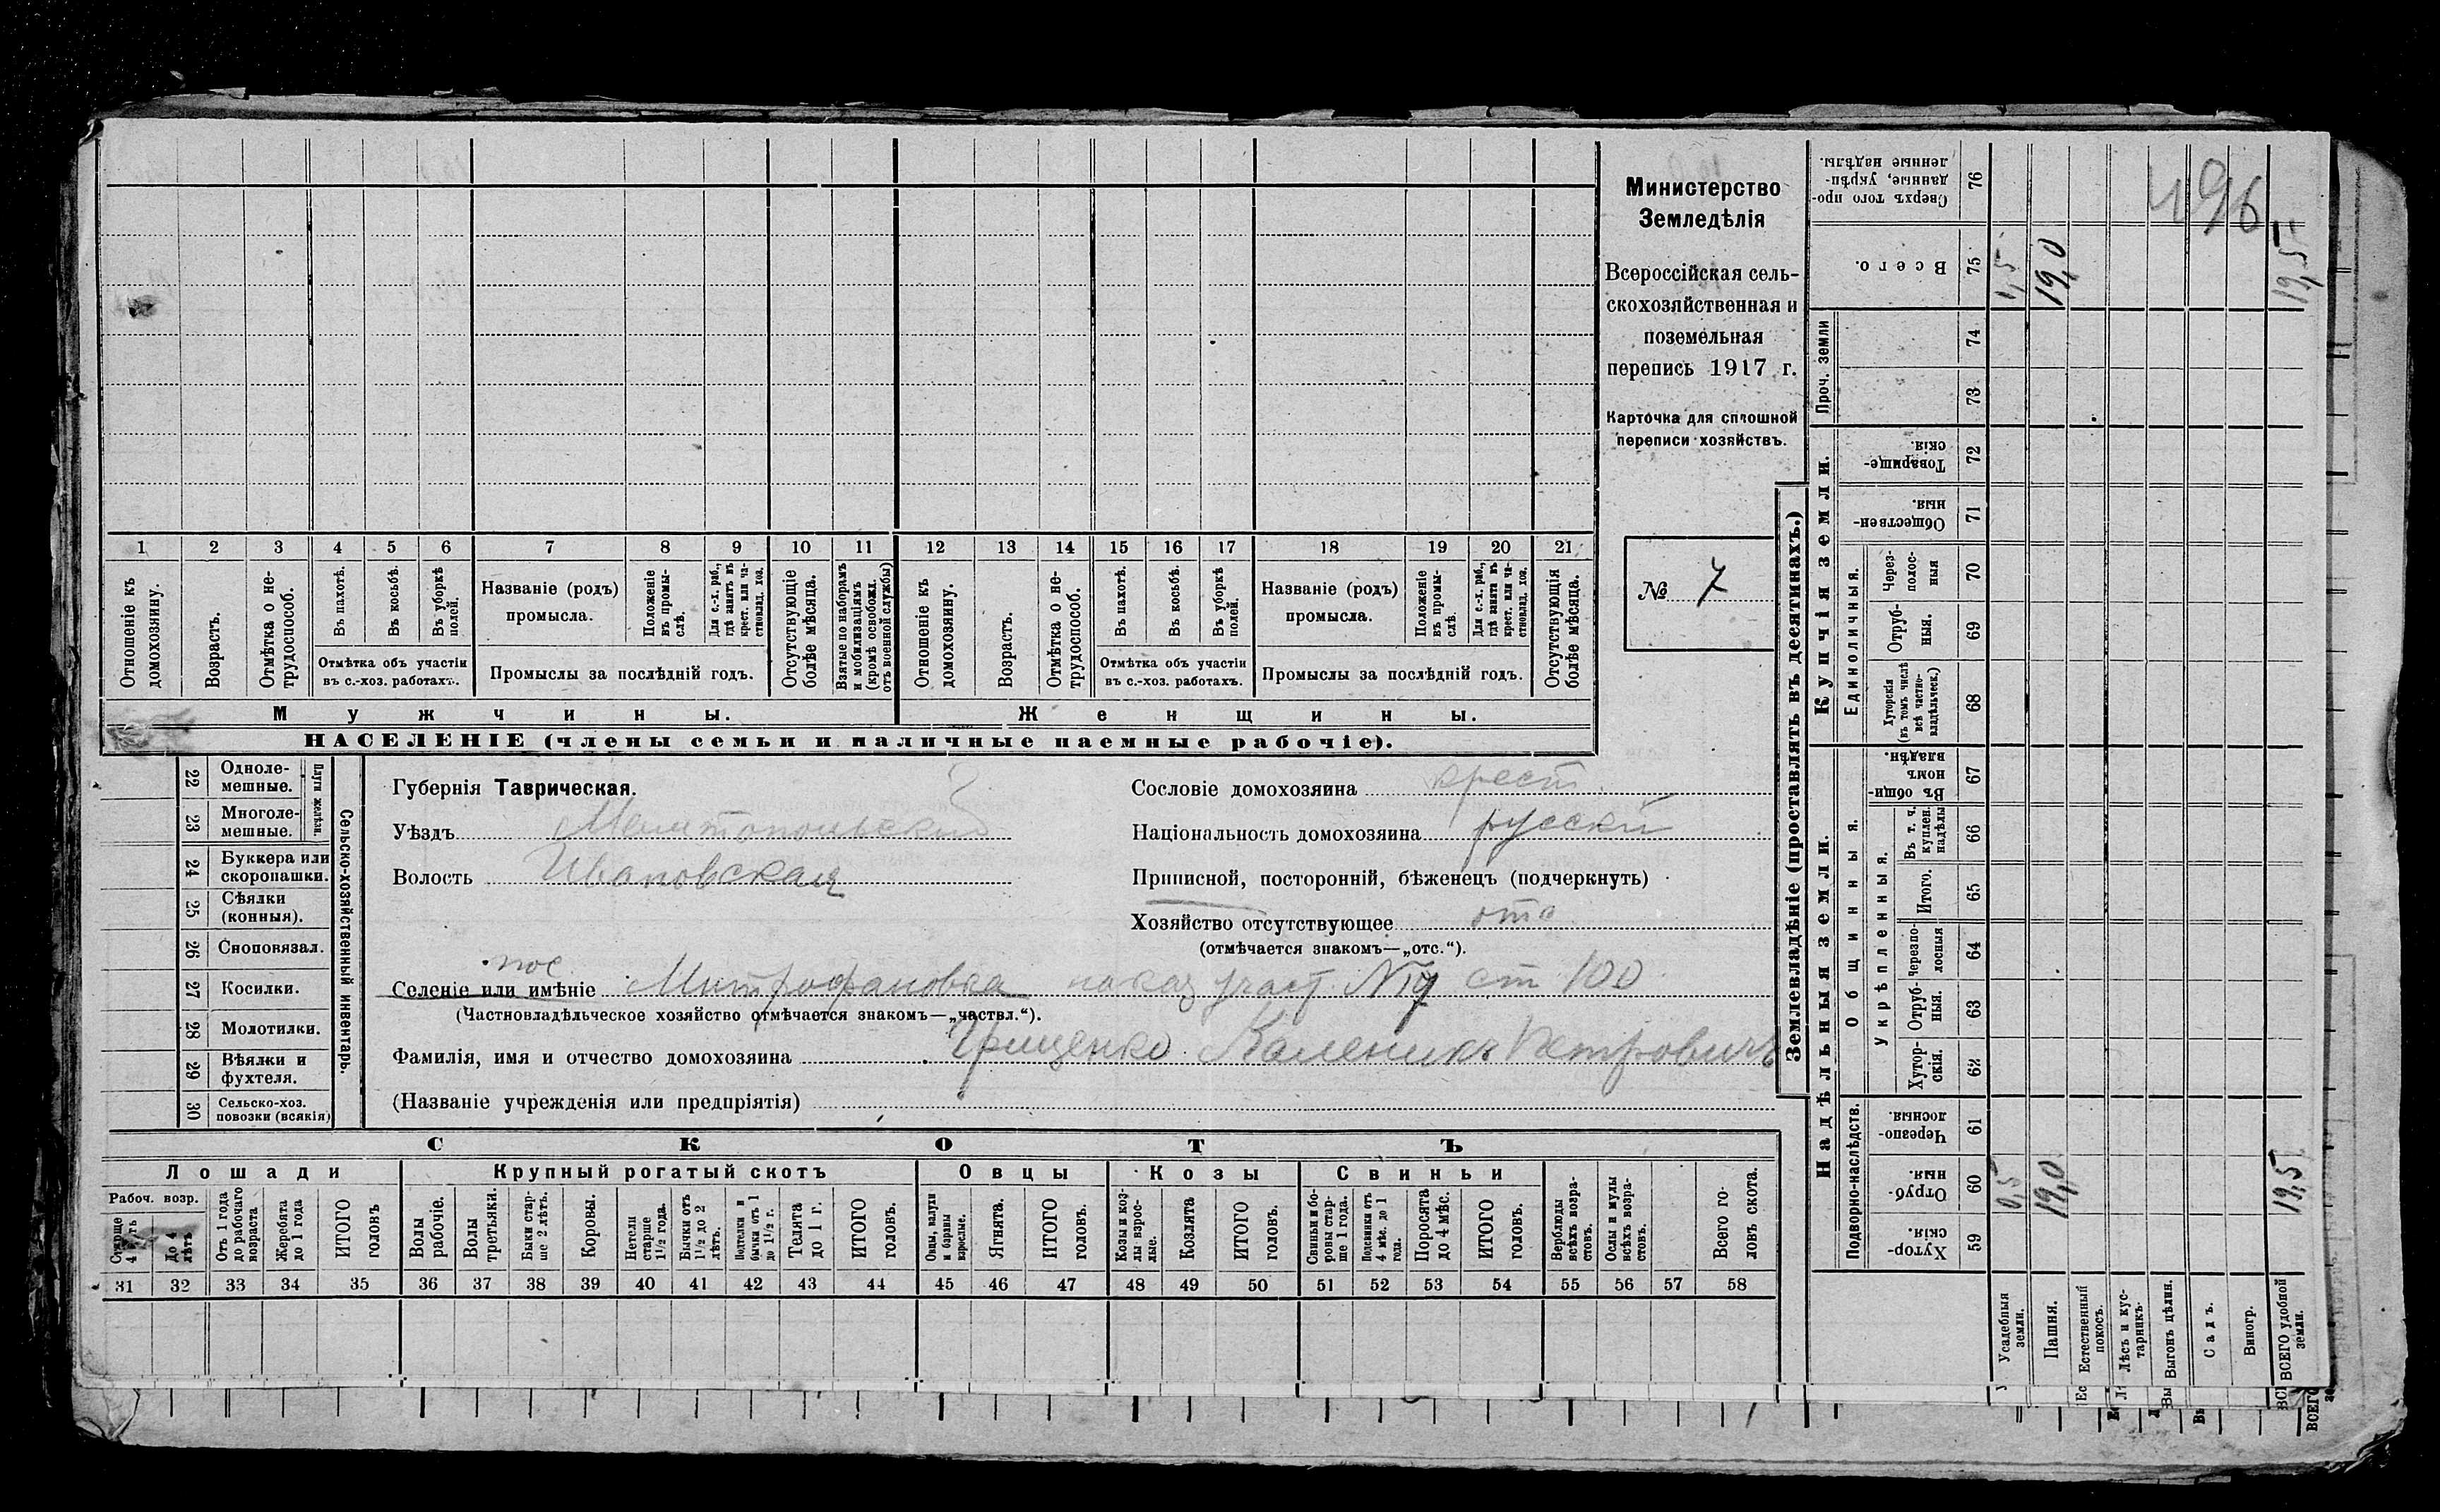 Министерство
Земледѣлія
Всероссійская сель-
скохозяйственная и
поземельная
перепись 1917 г.
Карточка для сплошной
переписи хозяйствъ.
№ 7
1 2 3 4 5 6 7 8 9 10 11 12 13 14 15 16 17 18 19 20 21
Отношеніе къ домохозяину.
Возрастъ.
Отмѣтка о не-трудоспособ.
Въ пахотѣ.
Въ косьбѣ.
Въ уборкѣ полей.
Отмѣтка объ участіи
въ с.-хоз. работахъ.
Названіе (родъ)
промысла.
Положеніе въ промы-слѣ.
Для с.-х. раб., гдѣ занятъ въ крест. или ча-стновлад. хоз.
Промыслы за послѣдній годъ.
Отсутствующіе болѣе мѣсяца.
Взятые по наборамъ и мобилизаціямъ (кромѣ освобожд. отъ военной службы)
Отношеніе къ домохозяину.
Возрастъ.
Отмѣтка о не-трудоспособ.
Въ пахотѣ.
Въ косьбѣ.
Въ уборкѣ полей.
Отмѣтка объ участіи
въ с.-хоз. работахъ.
Названіе (родъ)
промысла.
Положеніе въ промы-слѣ.
Для с.-х. раб., гдѣ занята въ крест. или ча-стновлад. хоз.
Промыслы за послѣдній годъ.
Отсутствующія болѣе мѣсяца.
Мужчины. Женщины.
НАСЕЛЕНІЕ (члены семьи и наличные наемные рабочіе).
22 Одноле-мешные.
23 Многоле-мешные.
Плуги желѣзн.
24 Буккера или скоропашки.
25 Сѣялки (конныя).
26 Сноповязал.
27 Косилки.
28 Молотилки.
29 Вѣялки и фухтеля.
30 Сельско-хоз. повозки (всякія)
Сельско-хозяйственный инвентарь.
Губернія Таврическая.
Уѣздъ Мелитопольский
Волость Ивановская
Сословіе домохозяина крест.
Національность домохозяина русский
Приписной, посторонній, бѣженецъ (подчеркнуть)
Хозяйство отсутствующее отс
(отмѣчается знакомъ—„отс.“).
пос.
Селеніе или имѣніе Митрофановка участ. ст 100
(Частновладѣльческое хозяйство отмѣчается знакомъ—„частвл.“).
Фамилія, имя и отчество домохозяина Грищенко Каленикъ Петровичъ
(Названіе учрежденія или предпріятія)
СКОТЪ
Лошади Крупный рогатый скотъ Овцы Козы Свиньи
Рабоч. возр.
Старше 4 лѣтъ
До 4 лѣтъ
Отъ 1 года до рабочаго возраста
Жеребята до 1 года
ИТОГО головъ
Волы рабочіе.
Волы третьяки.
Быки стар-ше 2 лѣтъ.
Коровы.
Нетели старше 1½ года.
Бычки отъ 1½ до 2 лѣтъ.
Подтелки и бычки отъ 1 до 1½ г.
Телята до 1 г.
ИТОГО головъ.
Овцы, валухи и бараны взрослые.
Ягнята.
ИТОГО головъ.
Козы и коз-лы взрос-лые.
Козлята
ИТОГО головъ.
Свиньи и бо-ровы стар-ше 1 года.
Подсвинки отъ 4 мѣс. до 1 года.
Поросята до 4 мѣс.
ИТОГО головъ.
Верблюды всѣхъ возра-стовъ.
Ослы и мулы всѣхъ возра-стовъ.
Всего го-ловъ скота.
31 32 33 34 35 36 37 38 39 40 41 42 43 44 45 46 47 48 49 50 51 52 53 54 55 56 57 58
Землевладѣніе (проставлять въ десятинахъ.)
Купчія земли.
Надѣльныя земли.
Проч. земли
Единоличныя.
Общинныя.
Укрѣпленныя.
Подворно-наслѣдств.
Сверхъ того про-данные, укрѣп-ленные надѣлы. 76
Всего. 75 0,5 19,0 19,5
74
73
Товарище-скія. 72
Обществен-ныя. 71
Через-полос-ныя 70
Отруб-ныя. 69
Хуторскія (въ томъ числѣ всѣ частно-владѣльческ.) 68
Въ общин-номъ владѣн. 67
Въ т. ч. куплен. надѣлы 66
Итого. 65
Черезпо-лосныя 64
Отруб-ныя. 63
Хутор-скія. 62
Черезпо-лосныя 61
Отруб-ныя. 60 0,5 19,0 19,5
Хутор-скія. 59
496
Усадебныя земли.
Пашня.
Естественный покосъ.
Лѣсъ и кус-тарникъ.
Выгонъ цѣлин.
Садъ.
Виногр.
ВСЕГО удобной земли.